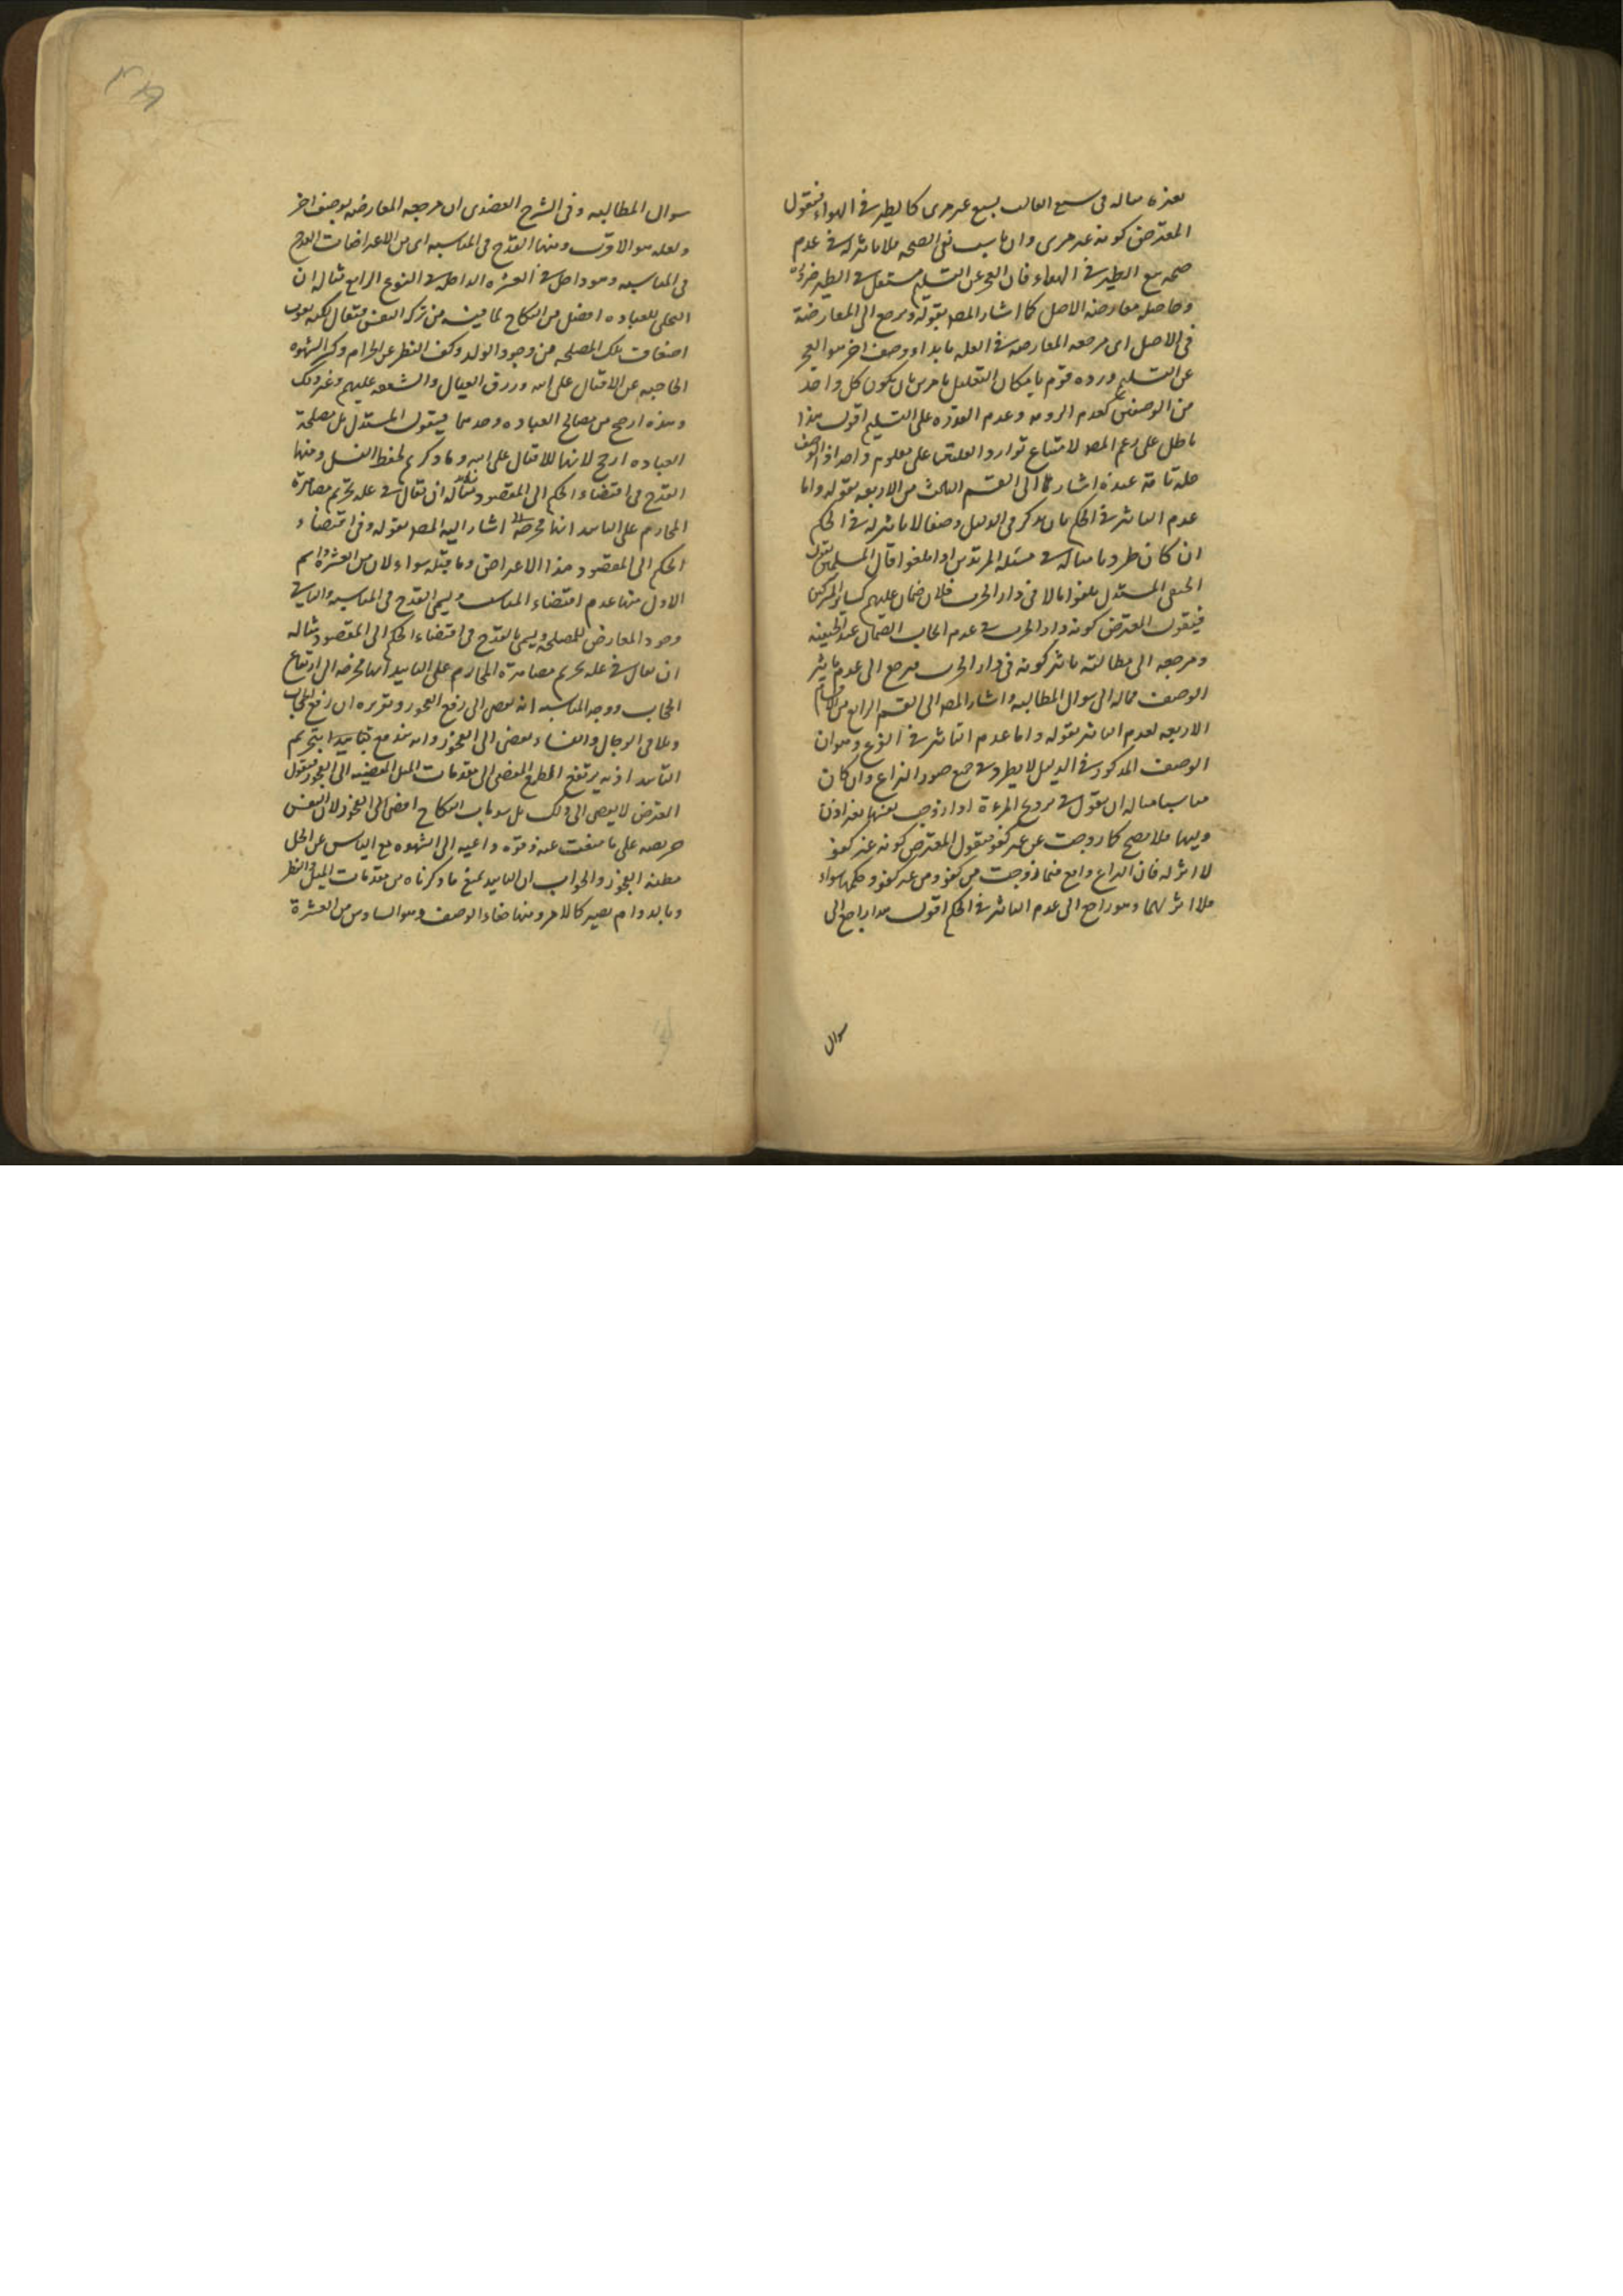 بعذره مثاله فى بيع الغائب بيع غير مرى كالطير فى الهواء فيقول
المعترض كونه غير مرى وان ناسب نفى الصحه فلا تاثير له فى عدم
صحه بيع الطير فى الهواء فان العجز عن التسليم مستقل فى الطير
وحاصله معارضه الاصل كما اشار المصـ بقوله ويرجع الى المعارضة
فى الاصل اى مرجعه المعارضه فى العله بابداء وصف اخر هو العجز
عن التسليم ورده قوم بامكان التعليل بامرين بان يكون كل واحد
من الوصفين كعدم الرويه وعدم القدره على التسليم اقول هذا
باطل على زعم المصـ لامتناع توارد العلتين على معلوم واحد
عله تامة عنده اشار الى القسم الثالث من الاربعه بقوله واما
عدم التاثير فى الحكم بان يذكر فى الدليل وصفا لا تاثير له فى الحكم
ان كان طرديا مثاله فى مسئله المرتدين اذا اتلفوا مال المسلمين يقول
الحنفى المستدل اتلفوا مالا فى دار الحرب فلا ضمان عليهم كساير المشركين
فيقول المعترض كونه دار الحرب فى عدم ايجاب الضمان عند الحنيفه
ومرجعه الى مطالبته تاثير كونه فى دار الحرب فيرجع الى عدم تاثير
الوصف فماله الى سوال المطالبه واشار المصـ الى القسم الرابع من الاقسام
الاربعه لعدم التاثير بقوله واما عدم التاثير فى الفرع وهو ان
الوصف المذكور فى الدليل لا يطرد فى جميع صور النزاع وان كان
مناسبا مثاله ان يقول فى تزويج المرءة اذا زوجت نفسها بغير اذن
وليها فلا يصح كما زوجت من غير كفو فيقول المعترض كونه غير كفو
لا اثر له فان النزاع واقع فيما زوجت من كفو ومن غير كفو وحكمهما سواء
فلا اثر لهما وهو راجع الى عدم التاثير فى الحكم اقول هذا راجع الى
سوال
سوال المطالبه وفى الشرح العضدى ان مرجعه المعارضه بوصف اخر
ولعله هو الاقرب ومنها القدح فى المناسبه اى من الاعتراضات القدح
فى المناسبه وهو داخل فى العشره الداخله فى النوع الرابع مثاله ان
التخلى للعباده افضل من النكاح لما فيه من تزكيه النفس فيقال لكنه يفوت
اضعاف تلك المصلحه من وجود الولد وكف النظر عن الحرام وكسر الشهوه
الحاجبه عن الاقبال على الله ورزق العيال والشفقه عليهم وغير ذلك
وهذه ارجح من مصالح العباده وحدها فيقول المستدل بل مصلحة
العباده ارجح لانها للاقبال على الله وما ذكرتم لحفظ النسل ومنها
القدح فى افضاء الحكم الى المقصود مثاله ان يقال فى عله تحريم مصاهرة
المحارم على التابيد انها محرضه اشار اليه المصـ بقوله وفى اقتضاء
الحكم الى المقصود هذا الاعتراض وما قبله سواء لان من العشره
الاول منها عدم اقتضاء المناسب ويسمى القدح فى المناسبه والثانى
وجود المعارض للمصلحه ويسمى بالقدح فى اقتضاء الحكم الى المقصود مثاله
ان يقال فى عله تحريم مصاهرة المحارم على التابيد انها محرضه الى ارتفاع
الحجاب ووجه المناسبه انه يفضى الى رفع الفجور وتقريره ان رفع الحجاب
وتلاقى الرجال والنساء يفضى الى الفجور وانه يندفع بتابيد التحريم
التابيد اذ به يرتفع الطمع المفضى الى مقدمات الميل المفضيه الى الفجور فيقول
المعترض لا يفضى الى ذلك بل سد باب النكاح افضى الى الفجور لان النفس
حريصه على ما منعت عنه وقوة داعيه الى الشهوه مع الياس عن الحل
مظنه الفجور والجواب ان التابيد يمنع ما ذكرناه من مقدمات الميل والنظر
وبالدوام يصير كالامر ومنها خفاء الوصف وهو السادس من العشرة